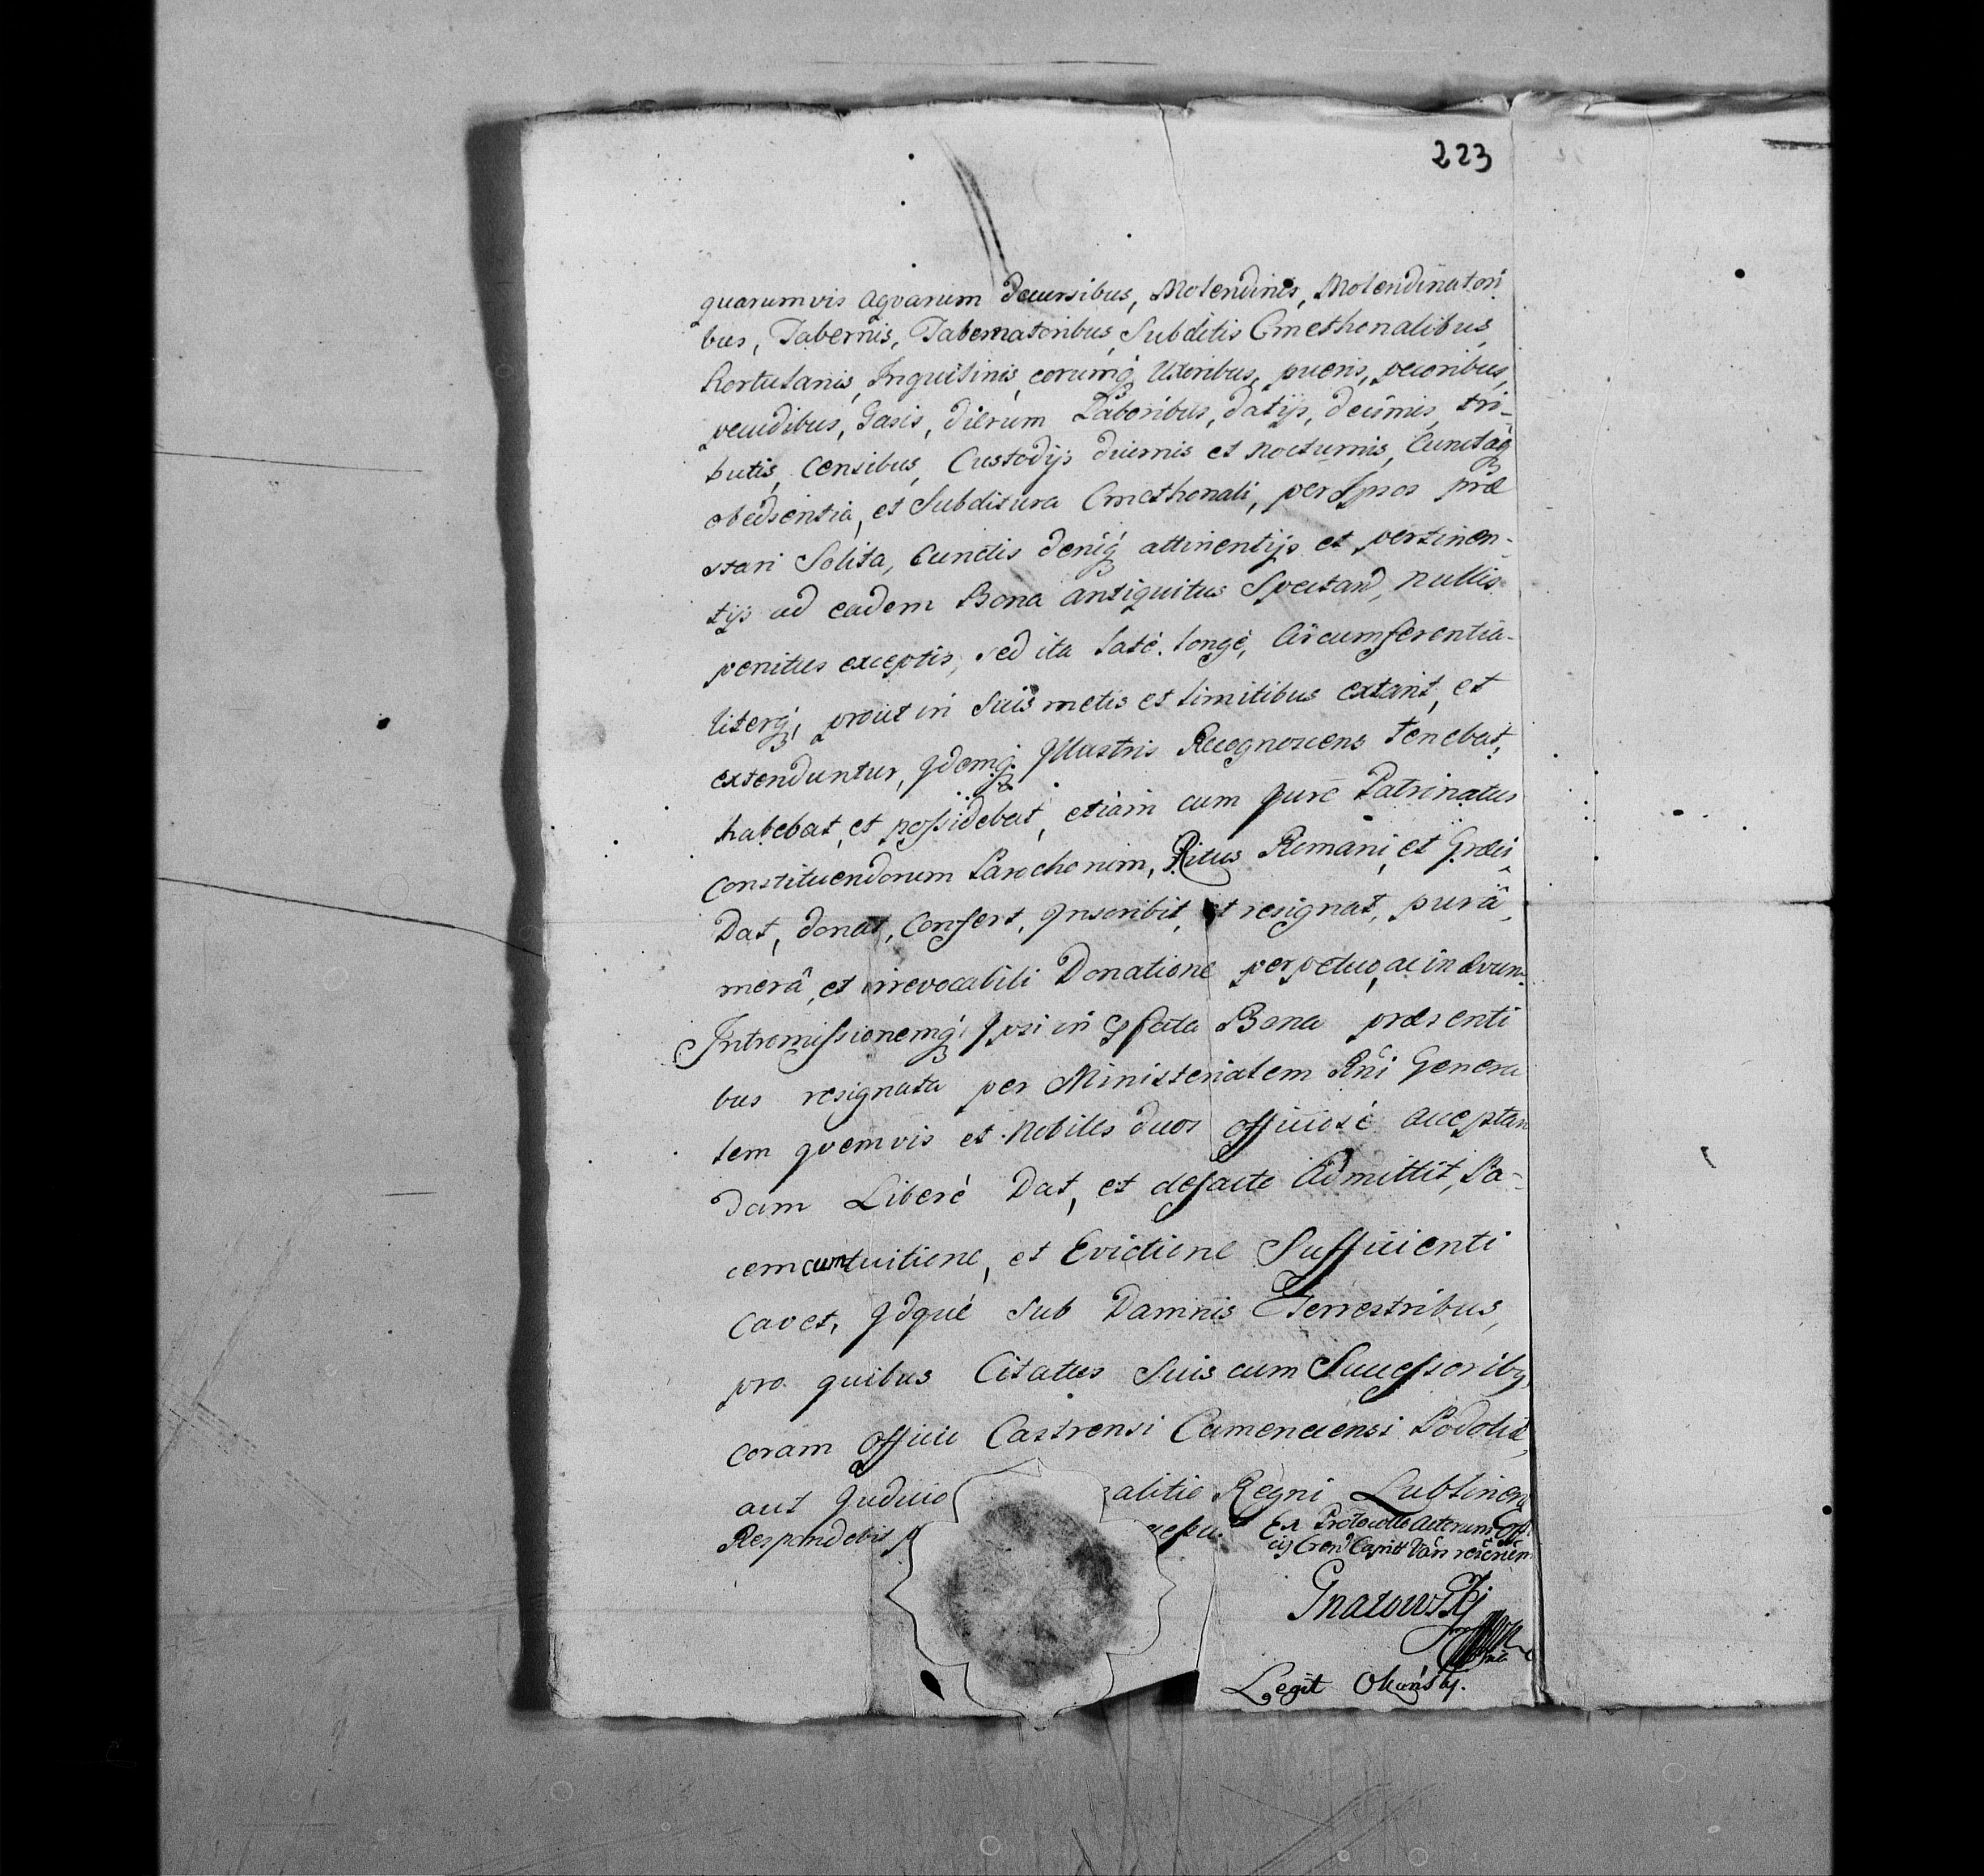 223
quarumvis aqvarum decursibus, Molendinis, Molendinatori
bus, Tabernis, Tabernatoribus, Subditis Cmethonalibus,
hortulanis, Inquilinis, eorumq; Uxoribus, pueris, pecoribus,
pecudibus, Gasis, dierum Laboribus, datijs, decimis, tri-
butis, Censibus, Custodijs diurnis et nocturnis, Cunctaq;
obedientia, et Subditura Cmethonali, per Ipsos præ
stari Solita, Cunctis deniq; attinentijs et pertinen-
tijs ad eadem Bona antiquitus Spectand, nullis
penitus exceptis, sed ita latè, longè, Circumferentia-
literq;, prout in Suis metis et limitibus extant, et
extenduntur, Idemq; Illustris Recognoscens tenebat,
habebat, et possidebat, etiam cum Jure Patrinatus
Constituendorum Parochorum, Ritus Romani, et Græci
Dat, donat, Confert, Inscribit, et resignat, purâ,
merâ, et irrevocabili Donatione perpetuo, ac in ævum.
Intromissionemq; Ipsi in Bona præsenti
bus resignata per Ministerialem Rni Genera
lem qvemvis et Nobiles duos officiosè acceptan
dam Liberè Dat, et defacto Admittit, Pa-
cem cum tuitione, et Evictione Sufficienti
Cavet, Idque Sub Damnis Terrestribus,
pro quibus Citatus Suis cum Successoriby
coram Officio Castrensi Camenecensi Podoliæ,
aut Judicio alitio Regni Lublinen
Respondebit Ex Protocollo Actorum
Legit Okuński.